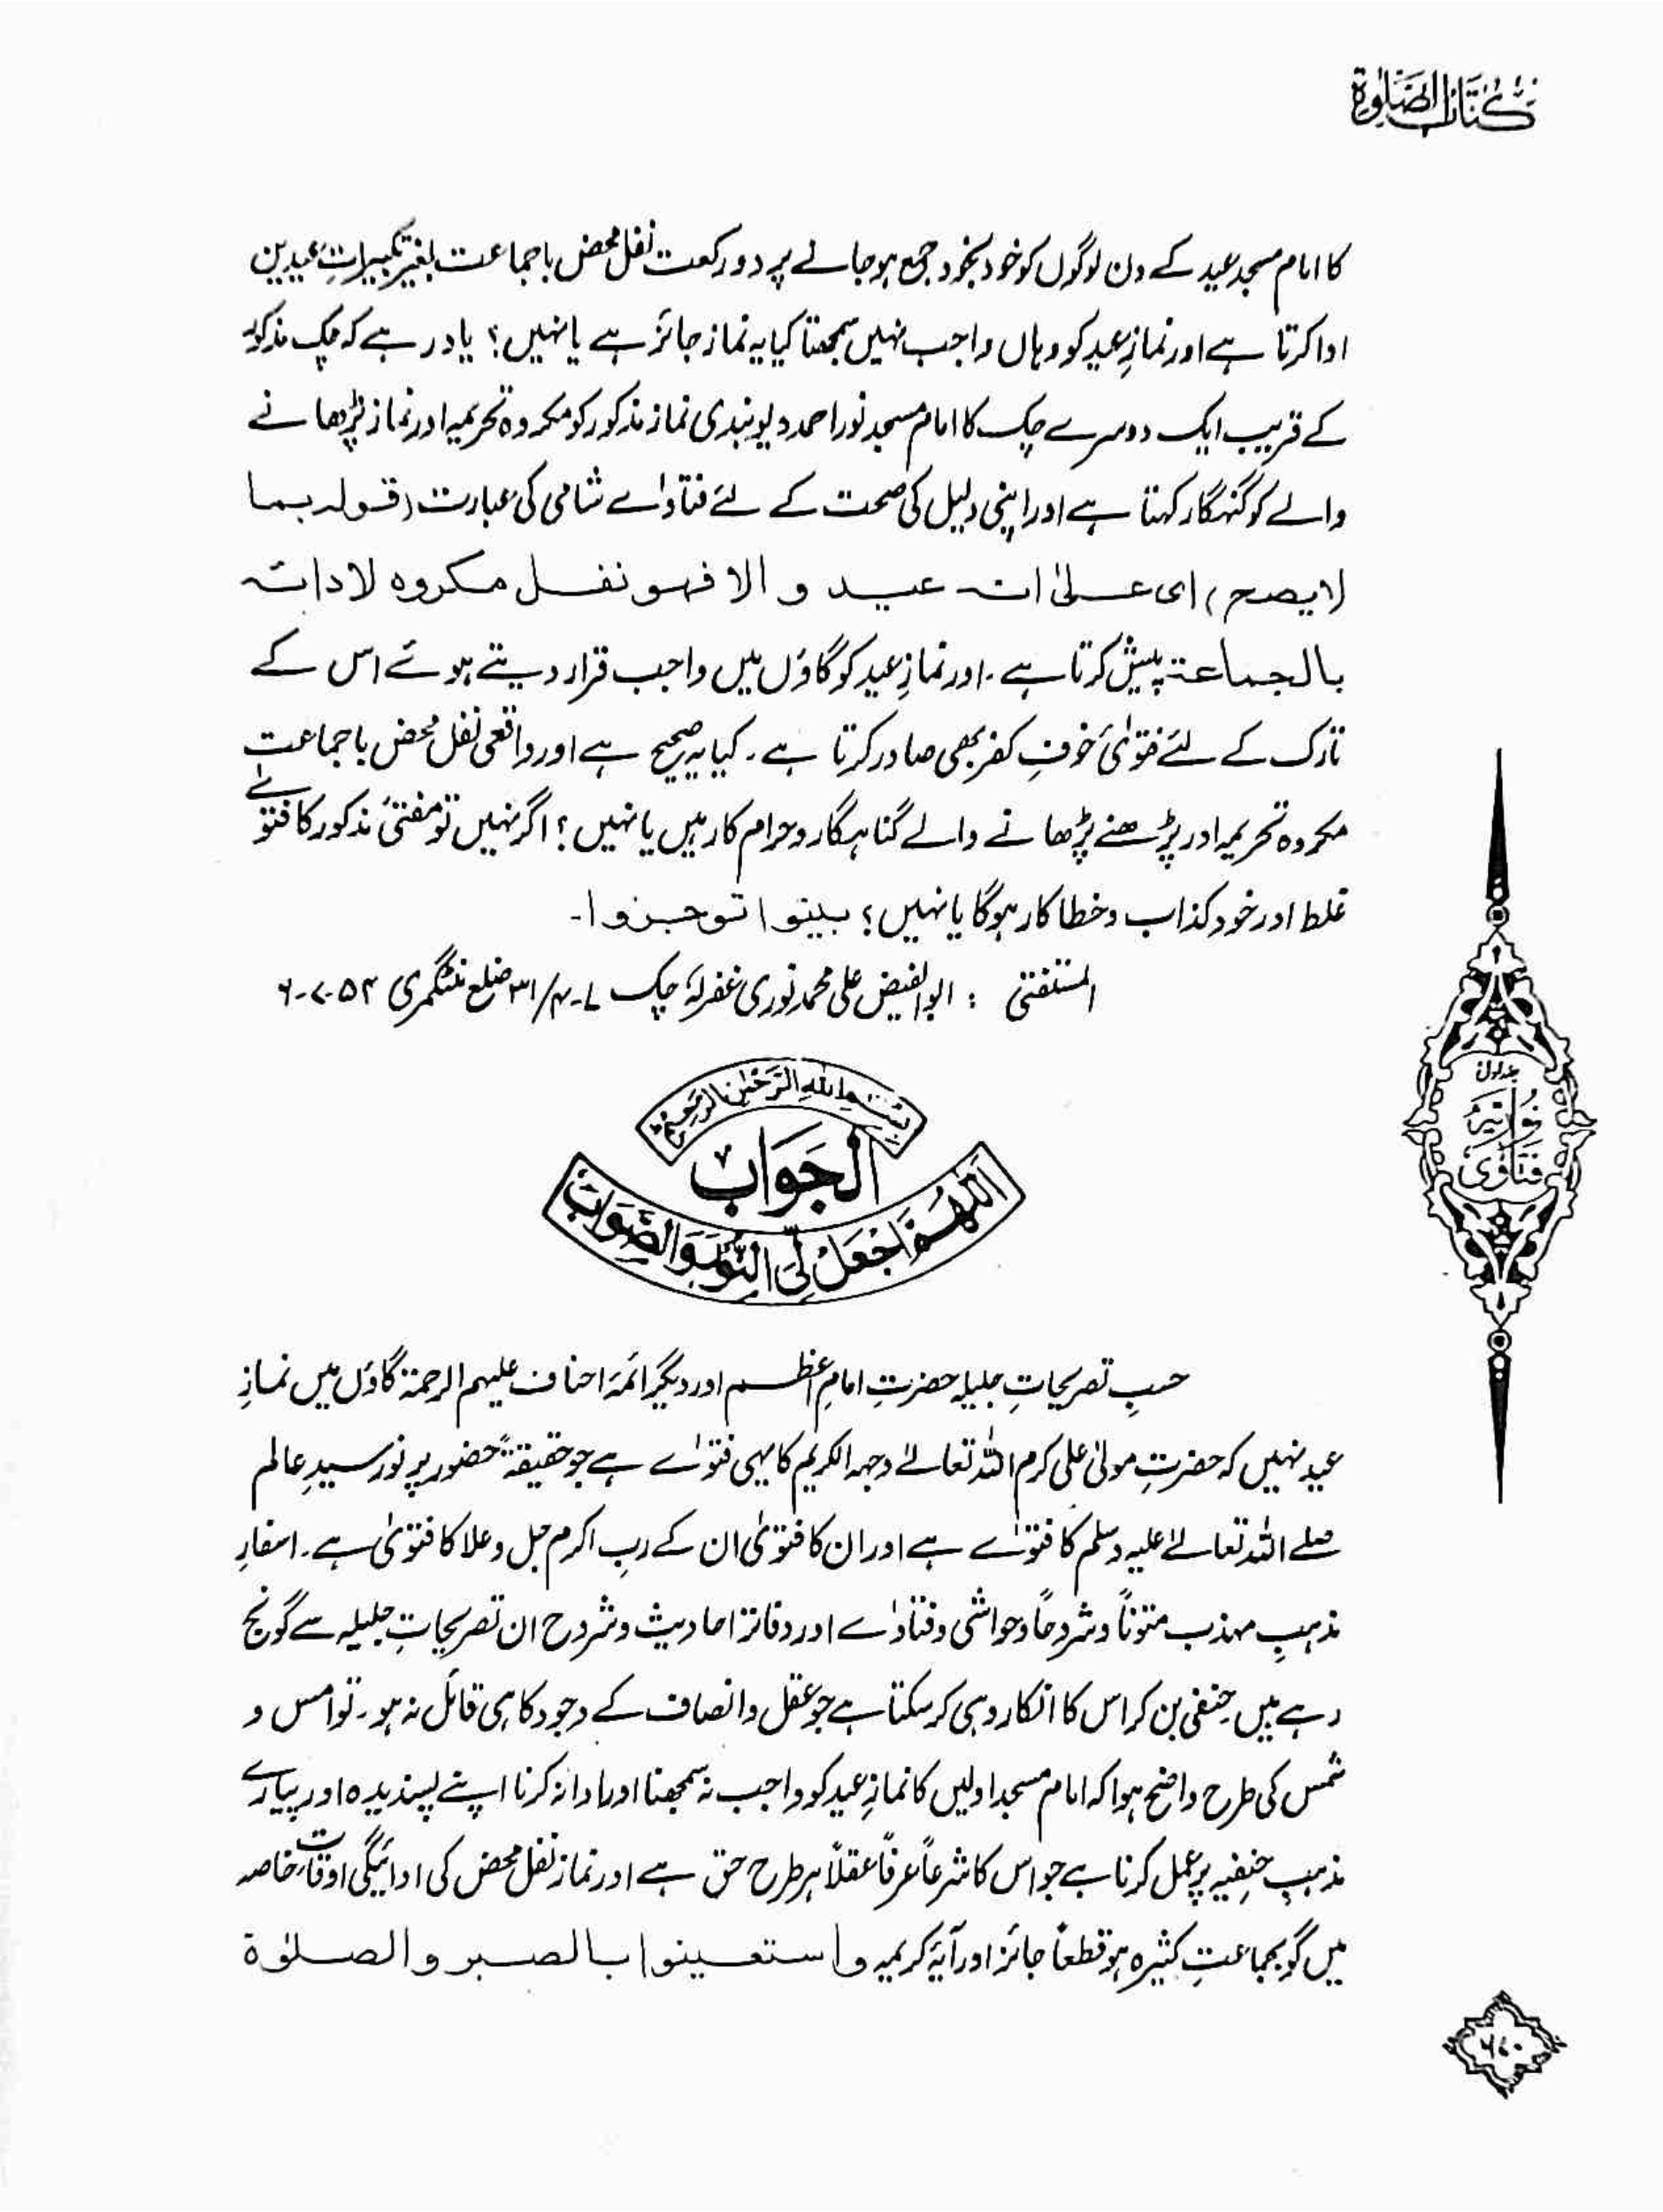 كتاب الصلوة
کا امام مسجد عید کے دن لوگوں کو خود بخود جمع ہو جانے پر دو رکعت نفل محض با جماعت بغیر تکبیراتِ عیدین
ادا کرتا ہے اور نمازِ عید کو وہاں واجب نہیں سمجھتا کیا یہ نماز جائز ہے یا نہیں؟ یاد رہے کہ چک مذکور
کے قریب ایک دوسرے چک کا امام مسجد نور احمد دیوبندی نماز مذکور کو مکروہ تحریمیہ اور نماز پڑھانے
والے کو گنہگار کہتا ہے اور اپنی دلیل کی صحت کے لئے فتاوٰے شامی کی عبارت (قولہ بما
لا یصح) ای علیٰ انہ عید و الا فهو نفل مکروه لادائہ
بالجماعۃ پیش کرتا ہے۔ اور نمازِ عید کو گاؤں میں واجب قرار دیتے ہوئے اس کے
تارک کے لئے فتوٰئ خوفِ کفر بھی صادر کرتا ہے۔ کیا یہ صحیح ہے اور واقعی نفل محض با جماعت
مکروہ تحریمیہ اور پڑھنے پڑھانے والے گناہگار و حرام کار ہیں یا نہیں؟ اگر نہیں تو مفتئ مذکور کا فتوٰے
غلط اور خود کذاب و خطا کار ہوگا یا نہیں؟ بینوا توجروا۔
المستفتی : ابو الفیض علی محمد نوری غفرلہٗ چک ۷-۴/۳۱ ضلع منٹگمری ۵۴-۷-۶
بسم الله الرحمٰن الرحيم
الجَوَاب
اللّٰهم اجعل لى النور والصواب
جلد اول
نوریہ
فتاوٰی
حسبِ تصریحاتِ جلیلہ حضرتِ امامِ اعظم اور دیگر ائمہ احناف علیہم الرحمۃ گاؤں میں نمازِ
عید نہیں کہ حضرتِ مولیٰ علی کرم اللہ تعالےٰ وجہہ الکریم کا یہی فتوٰے ہے جو حقیقۃً حضور پر نور سیدِ عالم
صلے اللہ تعالےٰ علیہ وسلم کا فتوٰے ہے اور ان کا فتوٰی ان کے ربِ اکرم جل و علا کا فتوٰی ہے۔ اسفارِ
مذہبِ مہذب متوناً و شروحًا و حواشی و فتاوٰے اور دفاتر احادیث و شروح ان تصریحاتِ جلیلہ سے گونج
رہے ہیں۔ حنفی بن کر اس کا انکار وہی کر سکتا ہے جو عقل و انصاف کے وجود کا ہی قائل نہ ہو۔ تو امس و
شمس کی طرح واضح ہوا کہ امام مسجد اولیں کا نمازِ عید کو واجب نہ سمجھنا اور ادا نہ کرنا اپنے پسندیدہ اور پیارے
مذہبِ حنفیہ پر عمل کرنا ہے جو اس کا شرعاً عرفاً عقلاً ہر طرح حق ہے اور نماز نفل محض کی ادائیگی اوقاتِ خاصہ
میں گو بجماعتِ کثیرہ ہو قطعاً جائز اور آیۂ کریمہ واستعینوا بالصبر والصلٰوة
۶۷۰